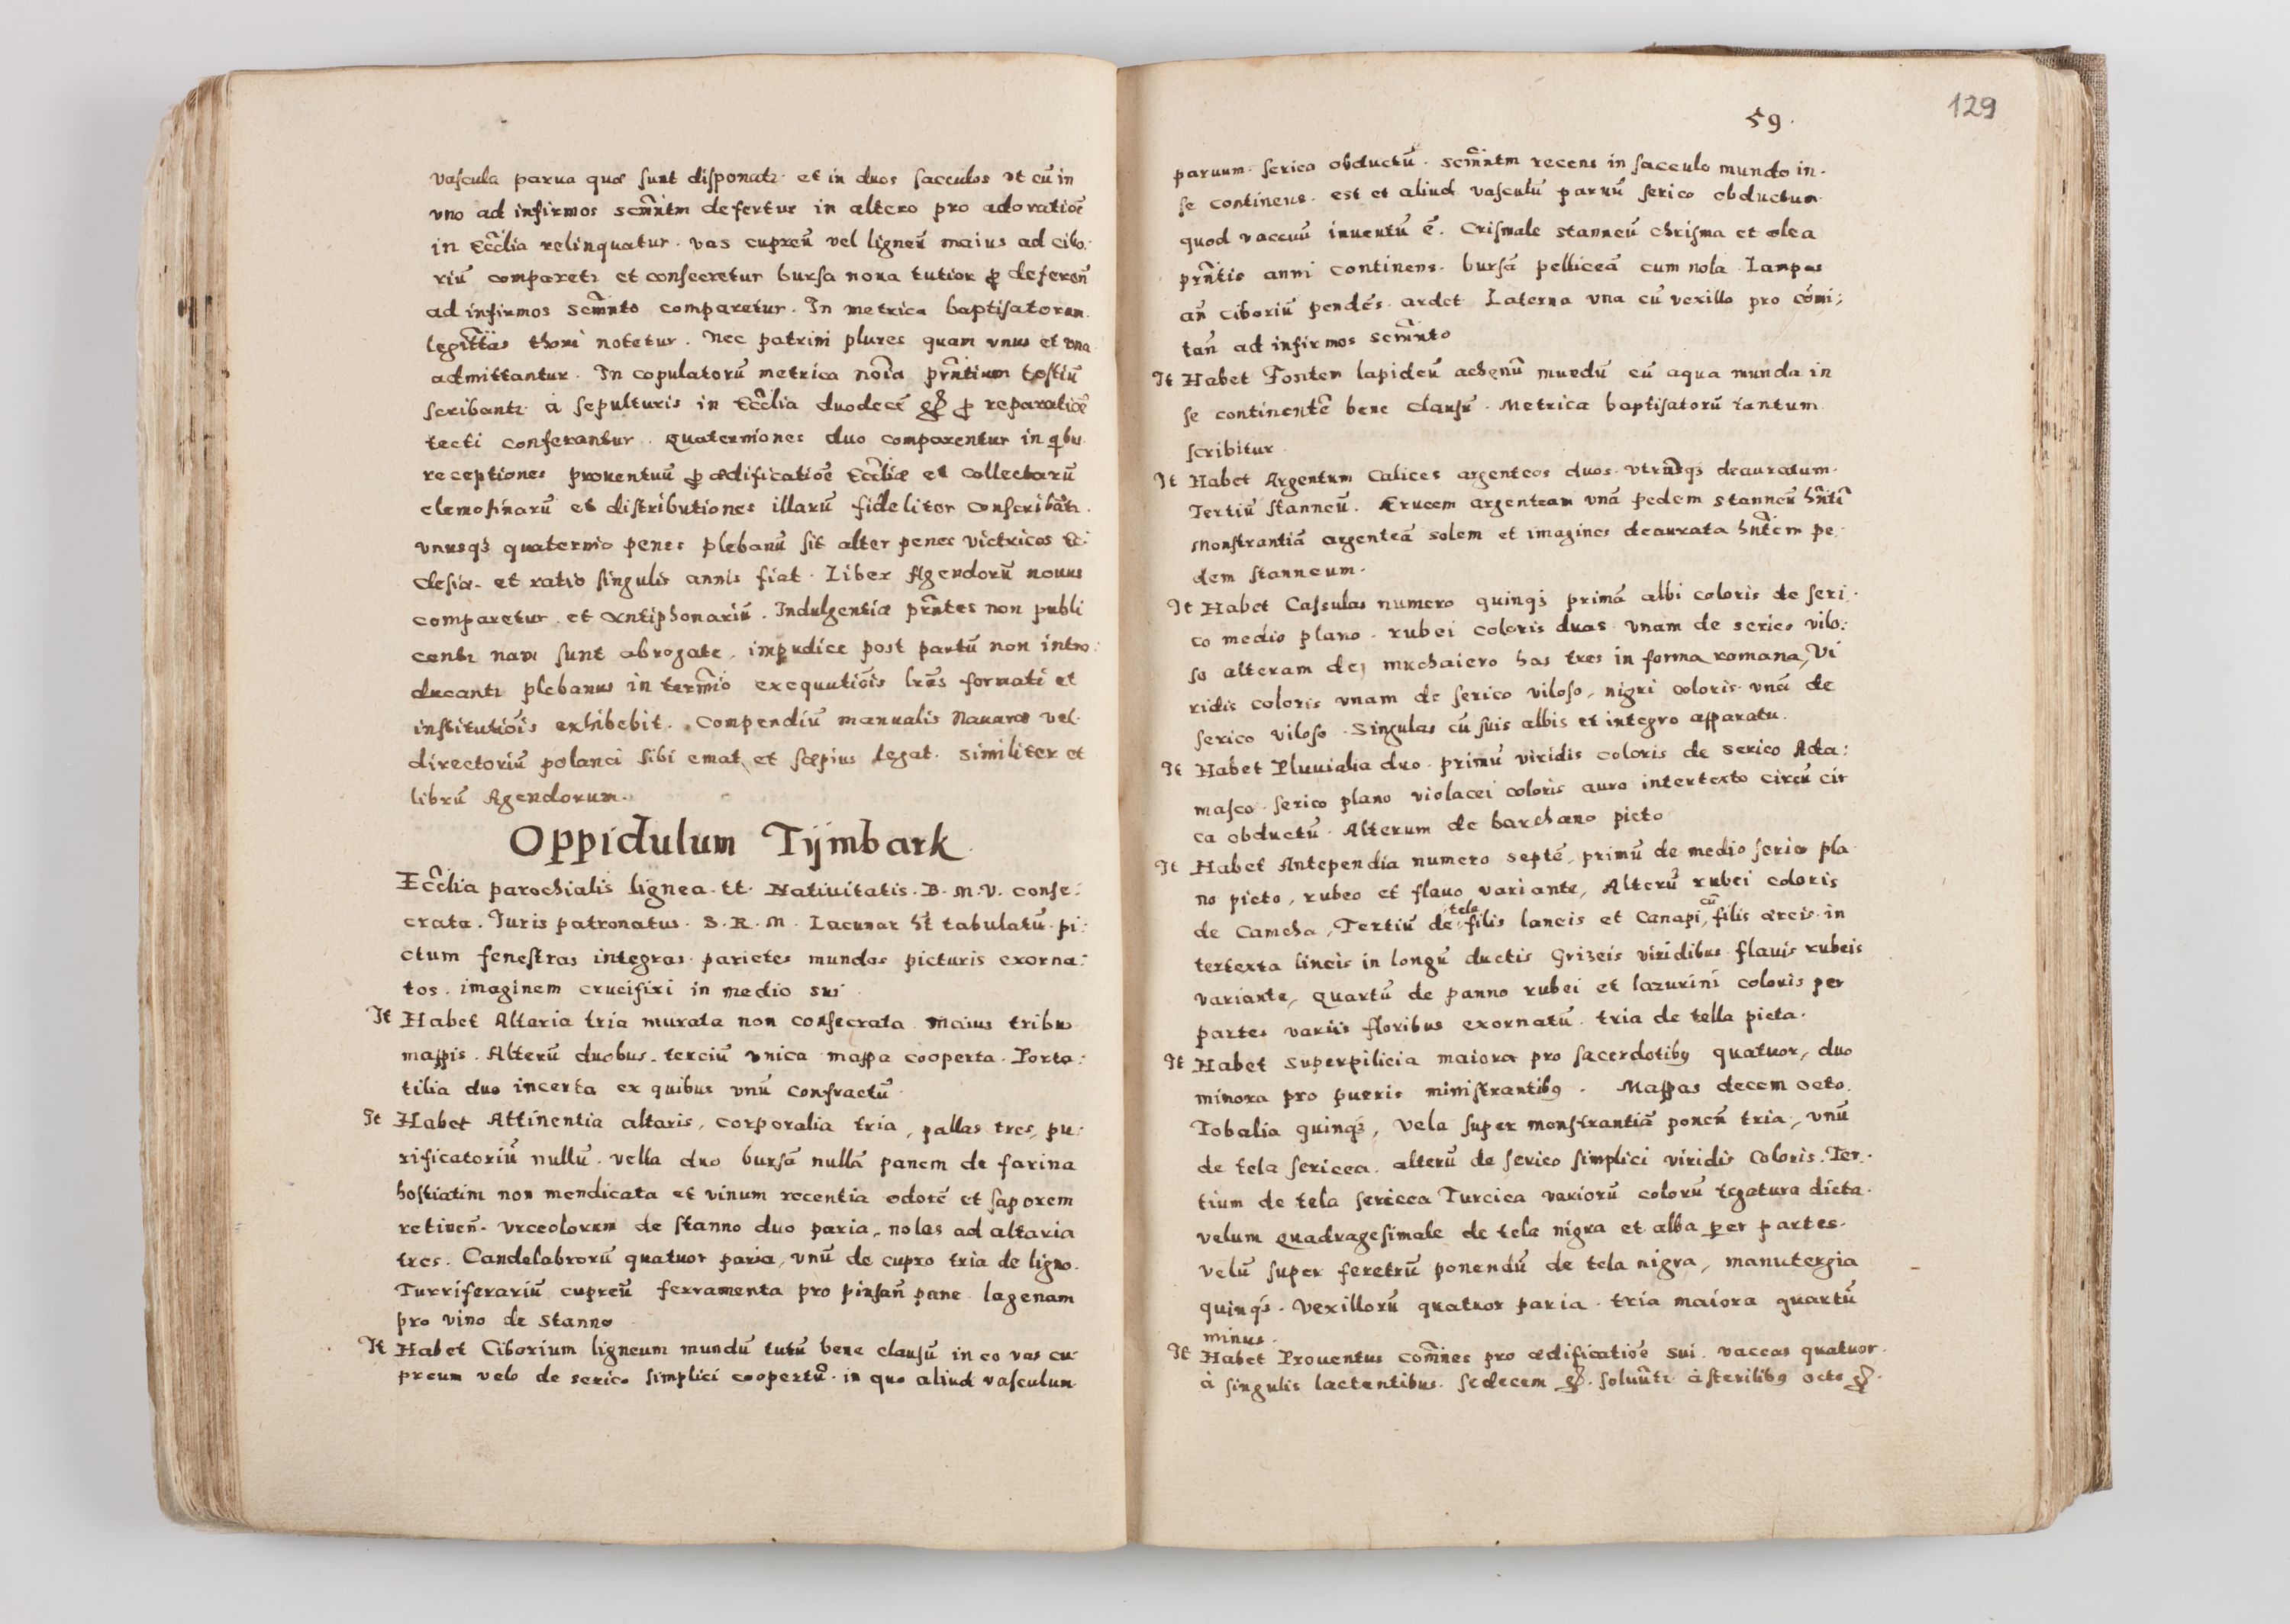 vaſcula parua quæ ſunt diſponatr et in duos ſacculos vt cū in
vno ad infirmos scm̃ntm defertur in altero pro adoratiōe
in Ecc̃lia relinquatur. vas cupreū vel ligneū maius ad cibo:
riū comparetr et consecretur bursa noua tutior ꝑ deferen̄
ad infirmos scm̃nto comparetur. In metrica baptiſatorum
legitt̃as thori notetur. Nec patrini plures quam vnus et vna
admittantur. In copulatorū metrica nōia prñtium teſtiū
ſcribantr à ſepulturis in Ecc̃lia duodecī gꝶ ꝑ reparatiōe
tecti conferantur. quaterniones duo comparentur in qbu
receptiones prouentuū ꝑ ædificatiōe Ecc̃liæ et collectarū
elemoſinarū et diſtributiones illarū fideliter conſcribātr.
vnusqꝫ quaternio penes plebanū ſit alter penes victricos Ec:
cleſiæ et ratio ſingulis annis fiat. Liber Agendorū nouus
comparetur et Antiphonariū. Indulgentiæ prñtes non publi
centr nam ſunt abrogate, impudice post partū non intro:
ducantr plebanus in term̃io exequutiōis lr̃as formati et
inſtitutiōis exhibebit. Compendiū manualis Nauarræ vel
directoriū polanci ſibi emat et ſæpius legat. Similiter et
librū Agendorum.
Oppidulum Tÿmbark.
Ecc̃lia parochialis lignea tt. Natiuitatis. B. M. V. conse:
crata. Iuris patronatus. S. R. M. Lacunar ht̃ tabulatū pi:
ctum feneſtras integras parietes mundos picturis exorna:
tos. imaginem crucifixi in medio sui
It Habet Altaria tria murata non conſecrata Maius tribus
mappis. Alterū duobus. terciū vnica mappa cooperta. Porta:
tilia duo incerta ex quibus vnū confractū
It Habet Attinentia altaris, corporalia tria, pallas tres, pu:
rificatoriū nullū. vella duo bursā nullā panem de farina
hoſtiatim non mendicata et vinum recentia odorē et ſaporem
retinen̄. vrceolorum de ſtanno duo paria, nolas ad altaria
tres. Candelabrorū quatuor paria, vnū de cupro tria de ligno.
Turriferariū cupreū ferramenta pro pinſan̄ pane lagenam
pro vino de Stanno
It Habet Ciborium ligneum mundū tutū bene clauſū in eo vas cu:
preum velo de serico ſimplici coopertū in quo aliud vaſculum
59.
129
paruum ſerico obductū. scm̃ntm recens in ſacculo mundo in-
ſe continens. est et aliud vaſculū paruū ſerico obductum
quod vacuū inuentū ē. Criſmale stanneū chriſma et olea
prñtis anni continens. burſā pelliceā cum nola Lampas
an̄ ciboriū pendēs ardet Laterna vna cū vexillo pro cōmi:
tan̄ ad infirmos scm̃nto
It Habet Fontem lapideū ahenū mundū cū aqua munda in
ſe continentē bene clauſū. Metrica baptiſatorū tantum
ſcribitur
It Habet Argentum Calices argenteos duos vtrūsqꝫ deauratum
Tertiū ſtanneū. Crucem argenteam vnā pedem stanneū hñtē
Monſtrantiā argenteā solem et imagines deaurata hñtem pe:
dem ſtanneum.
It Habet Caſsulas numero quinqꝫ primā albi coloris de ſeri:
co medio plano. rubei coloris duas vnam de serico vilo:
ſo alteram de muchaiero has tres in forma romana, Vi
ridis coloris vnam de ſerico viloſo, nigri coloris vnā de
ſerico viloſo. Singulas cū ſuis albis et integro apparatu.
It Habet Pluuialia duo. primū viridis coloris de serico Ada:
maſco ſerico plano violacei coloris auro intertexto circū cir
ca obductū. Alterum de barchano picto
It Habet Antependia numero septē, primū de medio ſerico pla
no picto, rubeo et flauo variante, Alterū rubei coloris
de Camcha, Tertiū de tela filis laneis et Canapi, cū filis æreis in
tertexta lineis in longū ductis Grizeis viridibus flauis rubeis
variante, quartū de panno rubei et lazurini coloris per
partes variis floribus exornatū tria de tella picta.
It Habet Superpilicia maiora pro ſacerdotibꝰ quatuor, duo
minora pro pueris miniſtrantibꝰ. Mappas decem octo.
Tobalia quinqꝫ, Vela ſuper monſtrantiā ponen̄ tria, vnū
de tela ſericea. alterū de ſerico ſimplici viridis Coloris. Ter:
tium de tela ſericea Turcica variorū colorū tgatura dicta.
velum Quadrageſimale de tela nigra et alba per partes.
velū ſuper feretrū ponendū de tela nigra, manutergia
quinqꝫ. Vexillorū quatuor paria tria maiora quartū
minus.
It Habet Prouentus com̃nes pro ædificatiōe sui vaccas quatuor
à ſingulis lactentibus. ſedecem gꝶ. ſoluūtr à ſterilibꝰ octo gꝶ.